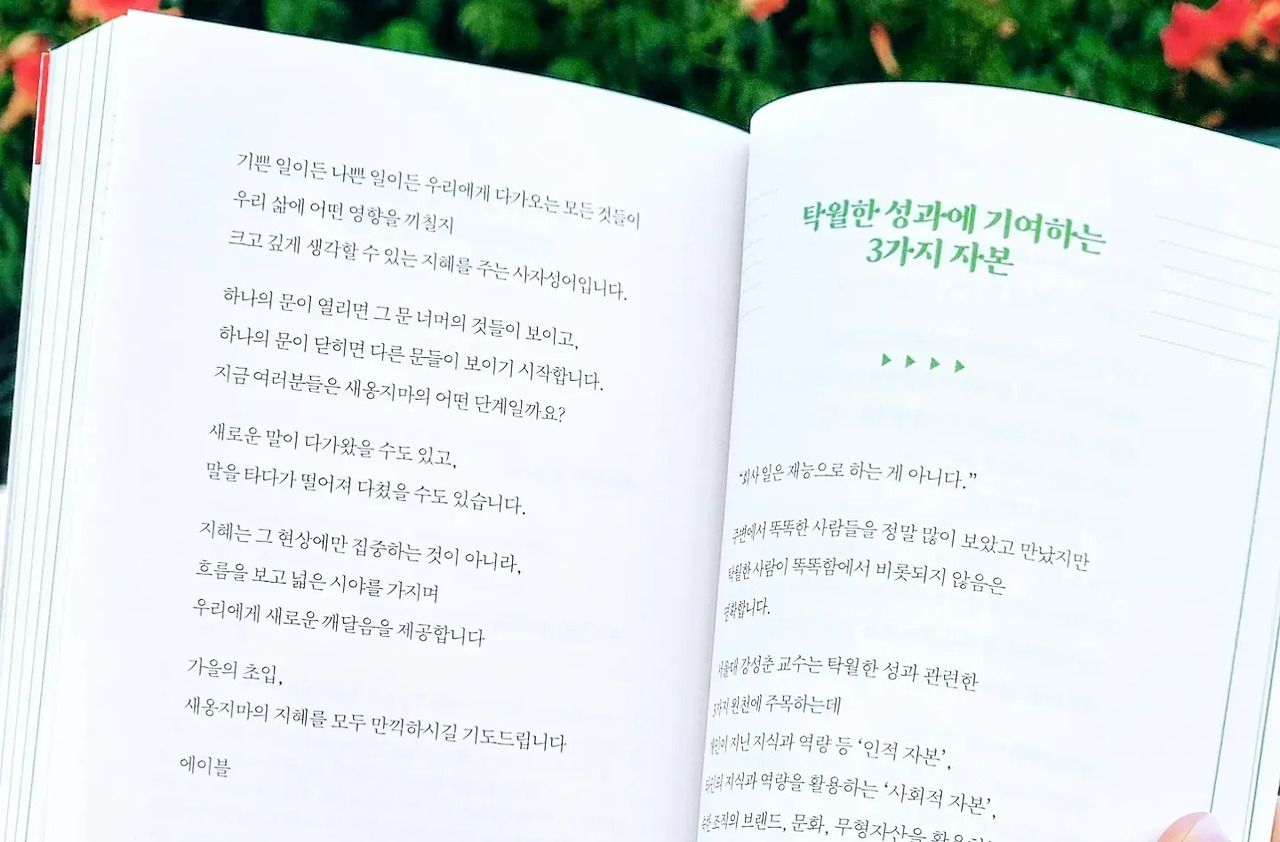 기쁜 일이든 나쁜 일이든 우리에게 다가오는 모든 것들이
우리 삶에 어떤 영향을 끼칠지
크고 깊게 생각할 수 있는 지혜를 주는 사자성어입니다.
하나의 문이 열리면 그 문 너머의 것들이 보이고,
하나의 문이 닫히면 다른 문들이 보이기 시작합니다.
지금 여러분들은 새옹지마의 어떤 단계일까요?
새로운 말이 다가왔을 수도 있고,
말을 타다가 떨어져 다쳤을 수도 있습니다.
지혜는 그 현상에만 집중하는 것이 아니라,
흐름을 보고 넓은 시야를 가지며
우리에게 새로운 깨달음을 제공합니다
가을의 초입,
새옹지마의 지혜를 모두 만끽하시길 기도드립니다
에이블
탁월한 성과에 기여하는
3가지 자본
“회사 일은 재능으로 하는 게 아니다.”
주변에서 똑똑한 사람들을 정말 많이 보았고 만났지만
탁월한 사람이 똑똑함에서 비롯되지 않음은
명확합니다.
서울대 강성춘 교수는 탁월한 성과 관련한
3가지 원천에 주목하는데
개인이 지닌 지식과 역량 등 ‘인적 자본’,
타인의 지식과 역량을 활용하는 ‘사회적 자본’,
속한 조직의 브랜드, 문화, 무형자산을